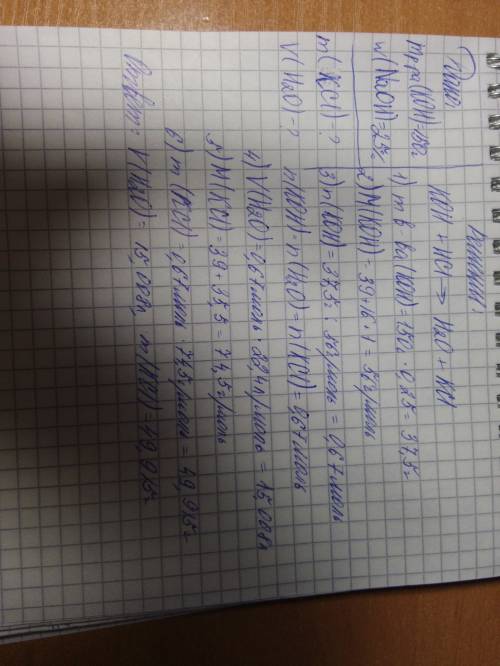 Дано
mр-ра(KOH)=150г
w(NaOH)=25%
m(KCl)-?
V(H2O)=?
Решение:
KOH + HCl → H2O + KCl
1) m в-ва(KOH)=150г · 0,25= 37,5г
2) M(KOH)=39+16+1=56г/моль
3) n(KOH)= 37,5г : 56г/моль = 0,67моль
n(KOH)=n(H2O)=n(KCl)=0,67моль
4) V(H2O)=0,67моль · 22,4л/моль = 15,008л
5) M(KCl)= 39+35,5=74,5г/моль
6) m(KCl)=0,67моль · 74,5г/моль=49,915г
Ответ: V(H2O)= 15,008л, m(KCl)=49,915г